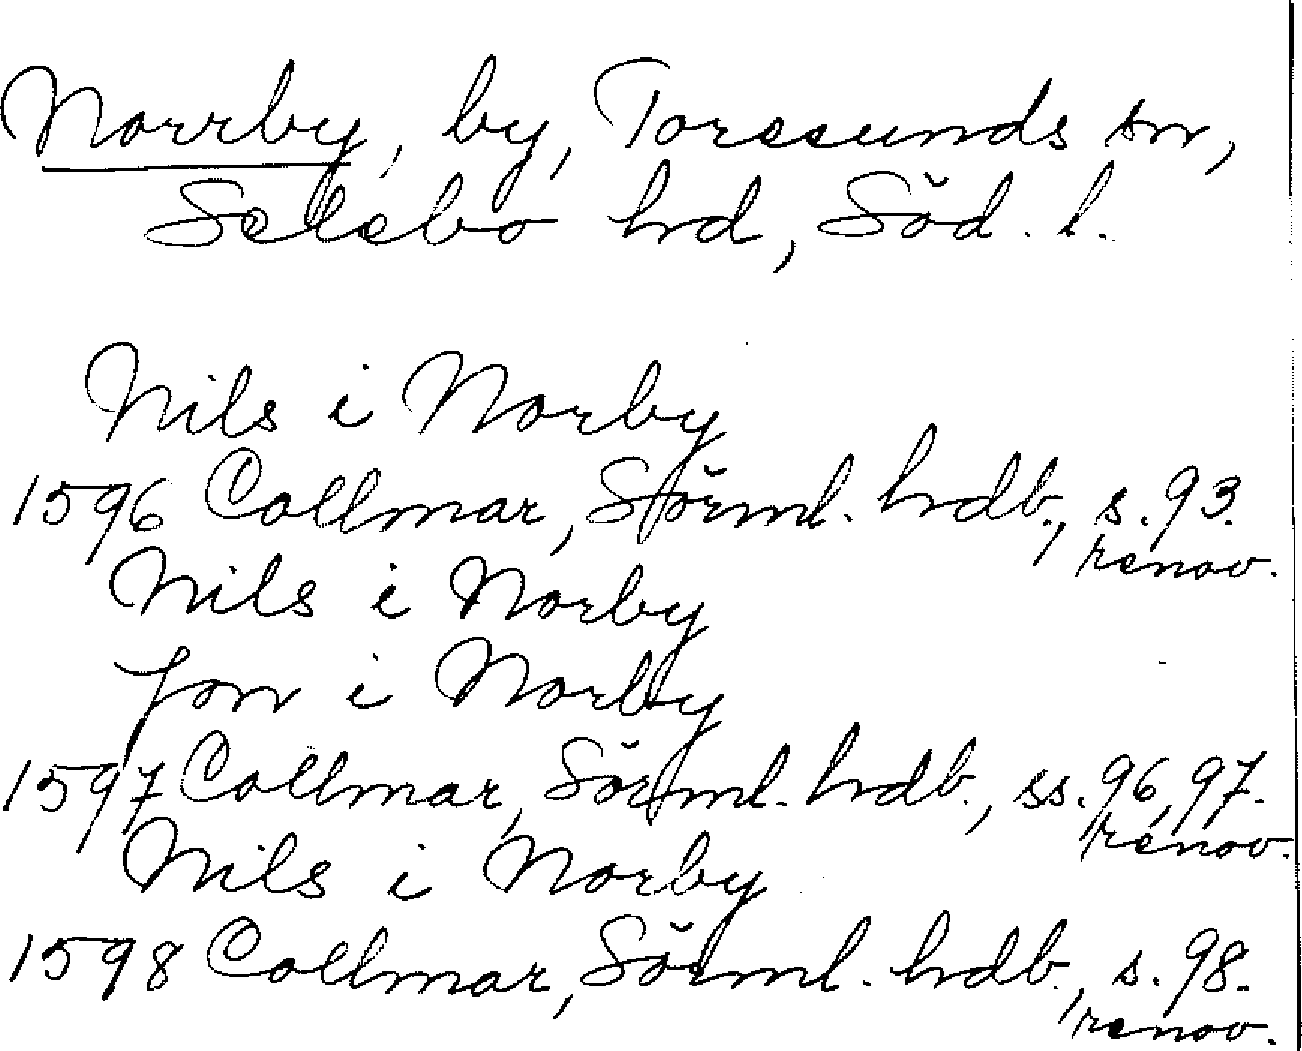 Norrby, by, Torssunds sn,
Selebo hd, Söd. l.
Nils i Norby
1596 Collmar, Sörml. hdb., s. 93.
renov.
Nils i Norby
Jon i Norby
1597 Collmar, Sörml. hdb., ss. 96, 97.
renov.
Nils i Norby
1598 Collmar, Sörml. hdb., s. 98.
renov.